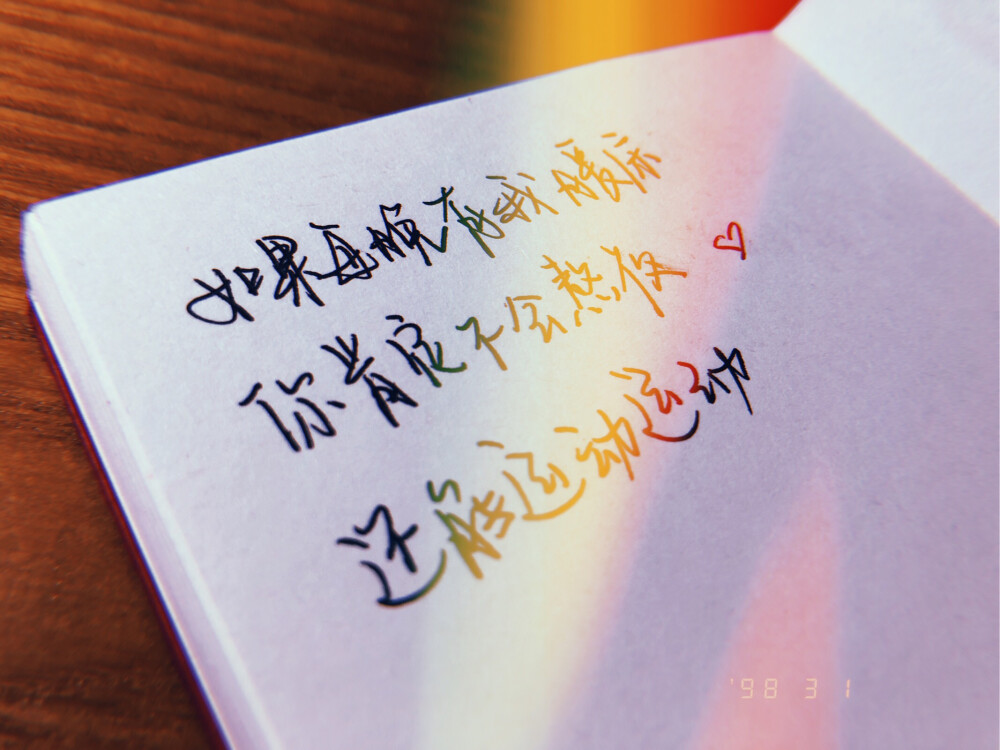 如果每晚有我暖床
你肯定不会熬夜♡
还能运动运动
'98 3 1